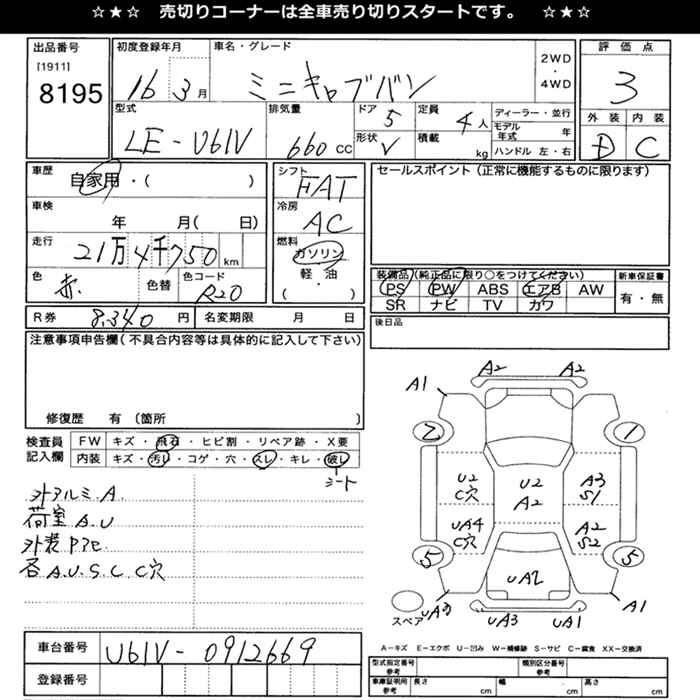 ☆★☆ 売切りコーナーは全車売り切りスタートです。 ☆★☆
出品番号 初度登録年月 車名・グレード 2WD・4WD 評価点
[1911]
8195 16 3月 ミニキャブバン 3
型式 排気量 ドア 5 定員 4人 ディーラー・並行 外装 内装
LE-U61V 660cc 形状 V 積載 kg モデル年式 年 D C
ハンドル 左・右
車歴 自家用・( ) シフト FAT セールスポイント (正常に機能するものに限ります)
車検 年 月( 日) 冷房 AC
走行 21万4千750km 燃料 ガソリン
軽・油
・
( )
色 赤 色替 色コード R20
装備品(純正品に限り○をつけてください) 新車保証書
PS PW ABS エアB AW 有・無
SR ナビ TV カワ
R券 8,340円 名変期限 月 日 後日品
注意事項申告欄(不具合内容等は具体的に記入して下さい)
修復歴 有 (箇所 )
検査員記入欄 FW キズ・飛石・ヒビ割・リペア跡・X要
内装 キズ・汚れ・コゲ・穴・スレ・キレ・破れ
シート
外アルミA
荷室A.U
各A.U.S.C C穴
A2 A2
A1
2 1
U2 C穴 U2 A2 A3 S1
UA4 C穴 A2 S2
5 5
UA2
スペア UA3 UA3 UA1 A1
車台番号 U61V-0912669
登録番号
A-キズ E-エクボ U-凹み W-補修跡 S-サビ C-腐食 XX-交換済
型式指定番号 参考 類別区分番号 参考
車庫証明用 参考 長さ cm 幅 cm 高さ cm